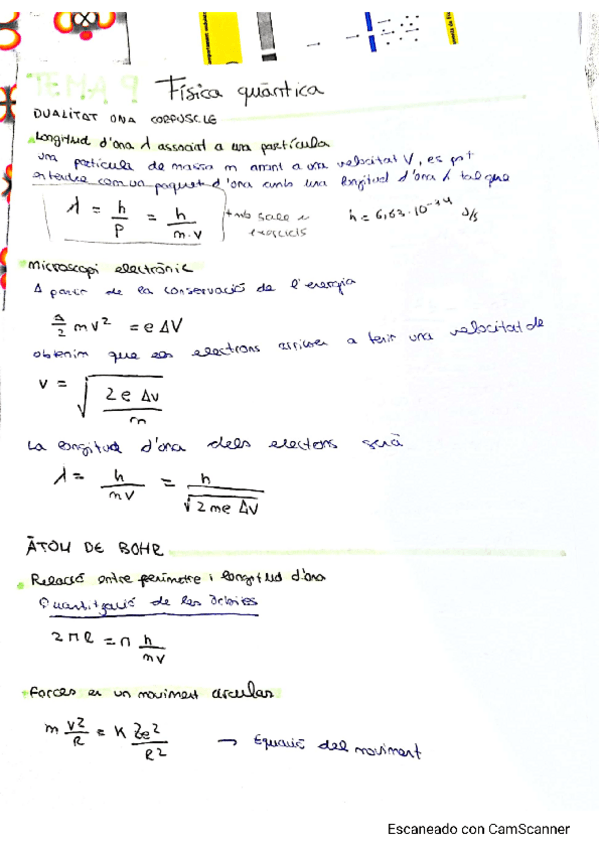 Física quàntica
DUALITAT ONA CORPUSCLE
Longitud d'ona λ associat a una partícula
una partícula de massa m anant a una velocitat V, es pot
entendre com un paquet d'ona amb una longitud d'ona λ tal que
λ = h/p = h/m·v
h = 6,63·10 J/s
exercicis
Microscopi electrònic
A partir de la conservació de l'energia
1/2 mv² = e ΔV
obtenim que els electrons arriben a tenir una velocitat de
v = √(2e ΔV/m)
La longitud d'ona dels electons serà
λ = h/mv = h/√2me ΔV
ÀTOM DE BOHR
Relació entre perímetre i longitud d'ona
Quantització de les òrbites
2πR = n h/mv
Forces en un moviment circular
m v²/R = K Ze²/R² → Equació del moviment
Escaneado con CamScanner